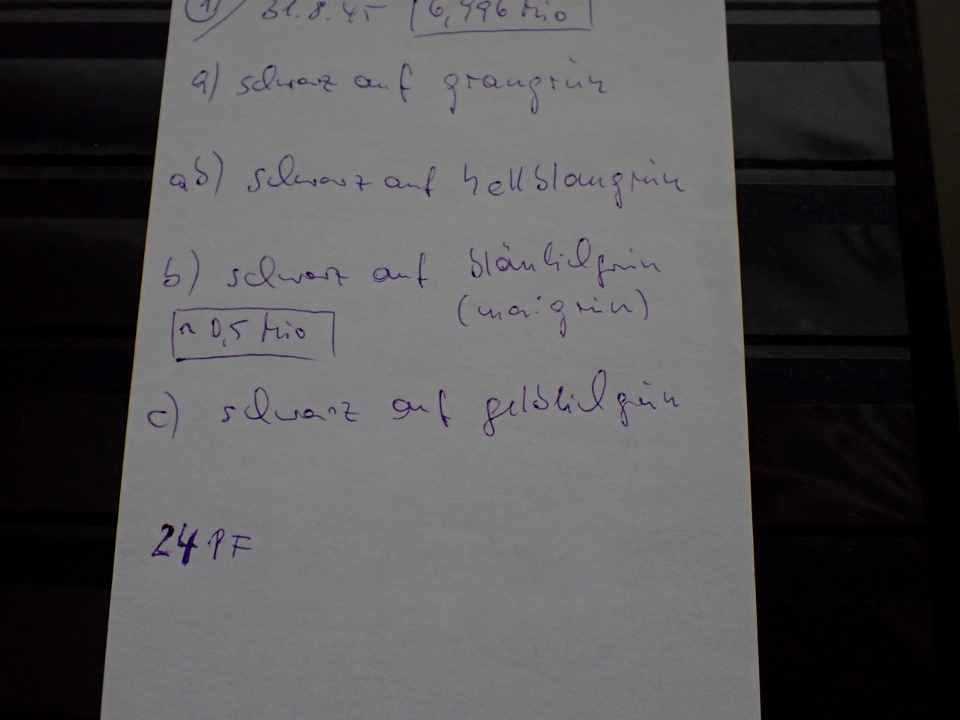 1) 31.8.45 6,496 Mio
a) schwarz auf graugrün
ab) schwarz auf hellblaugrün
b) schwarz auf bläulichgrün
(maigrün)
~ 0,5 Mio
c) schwarz auf gelblichgrün
24 PF